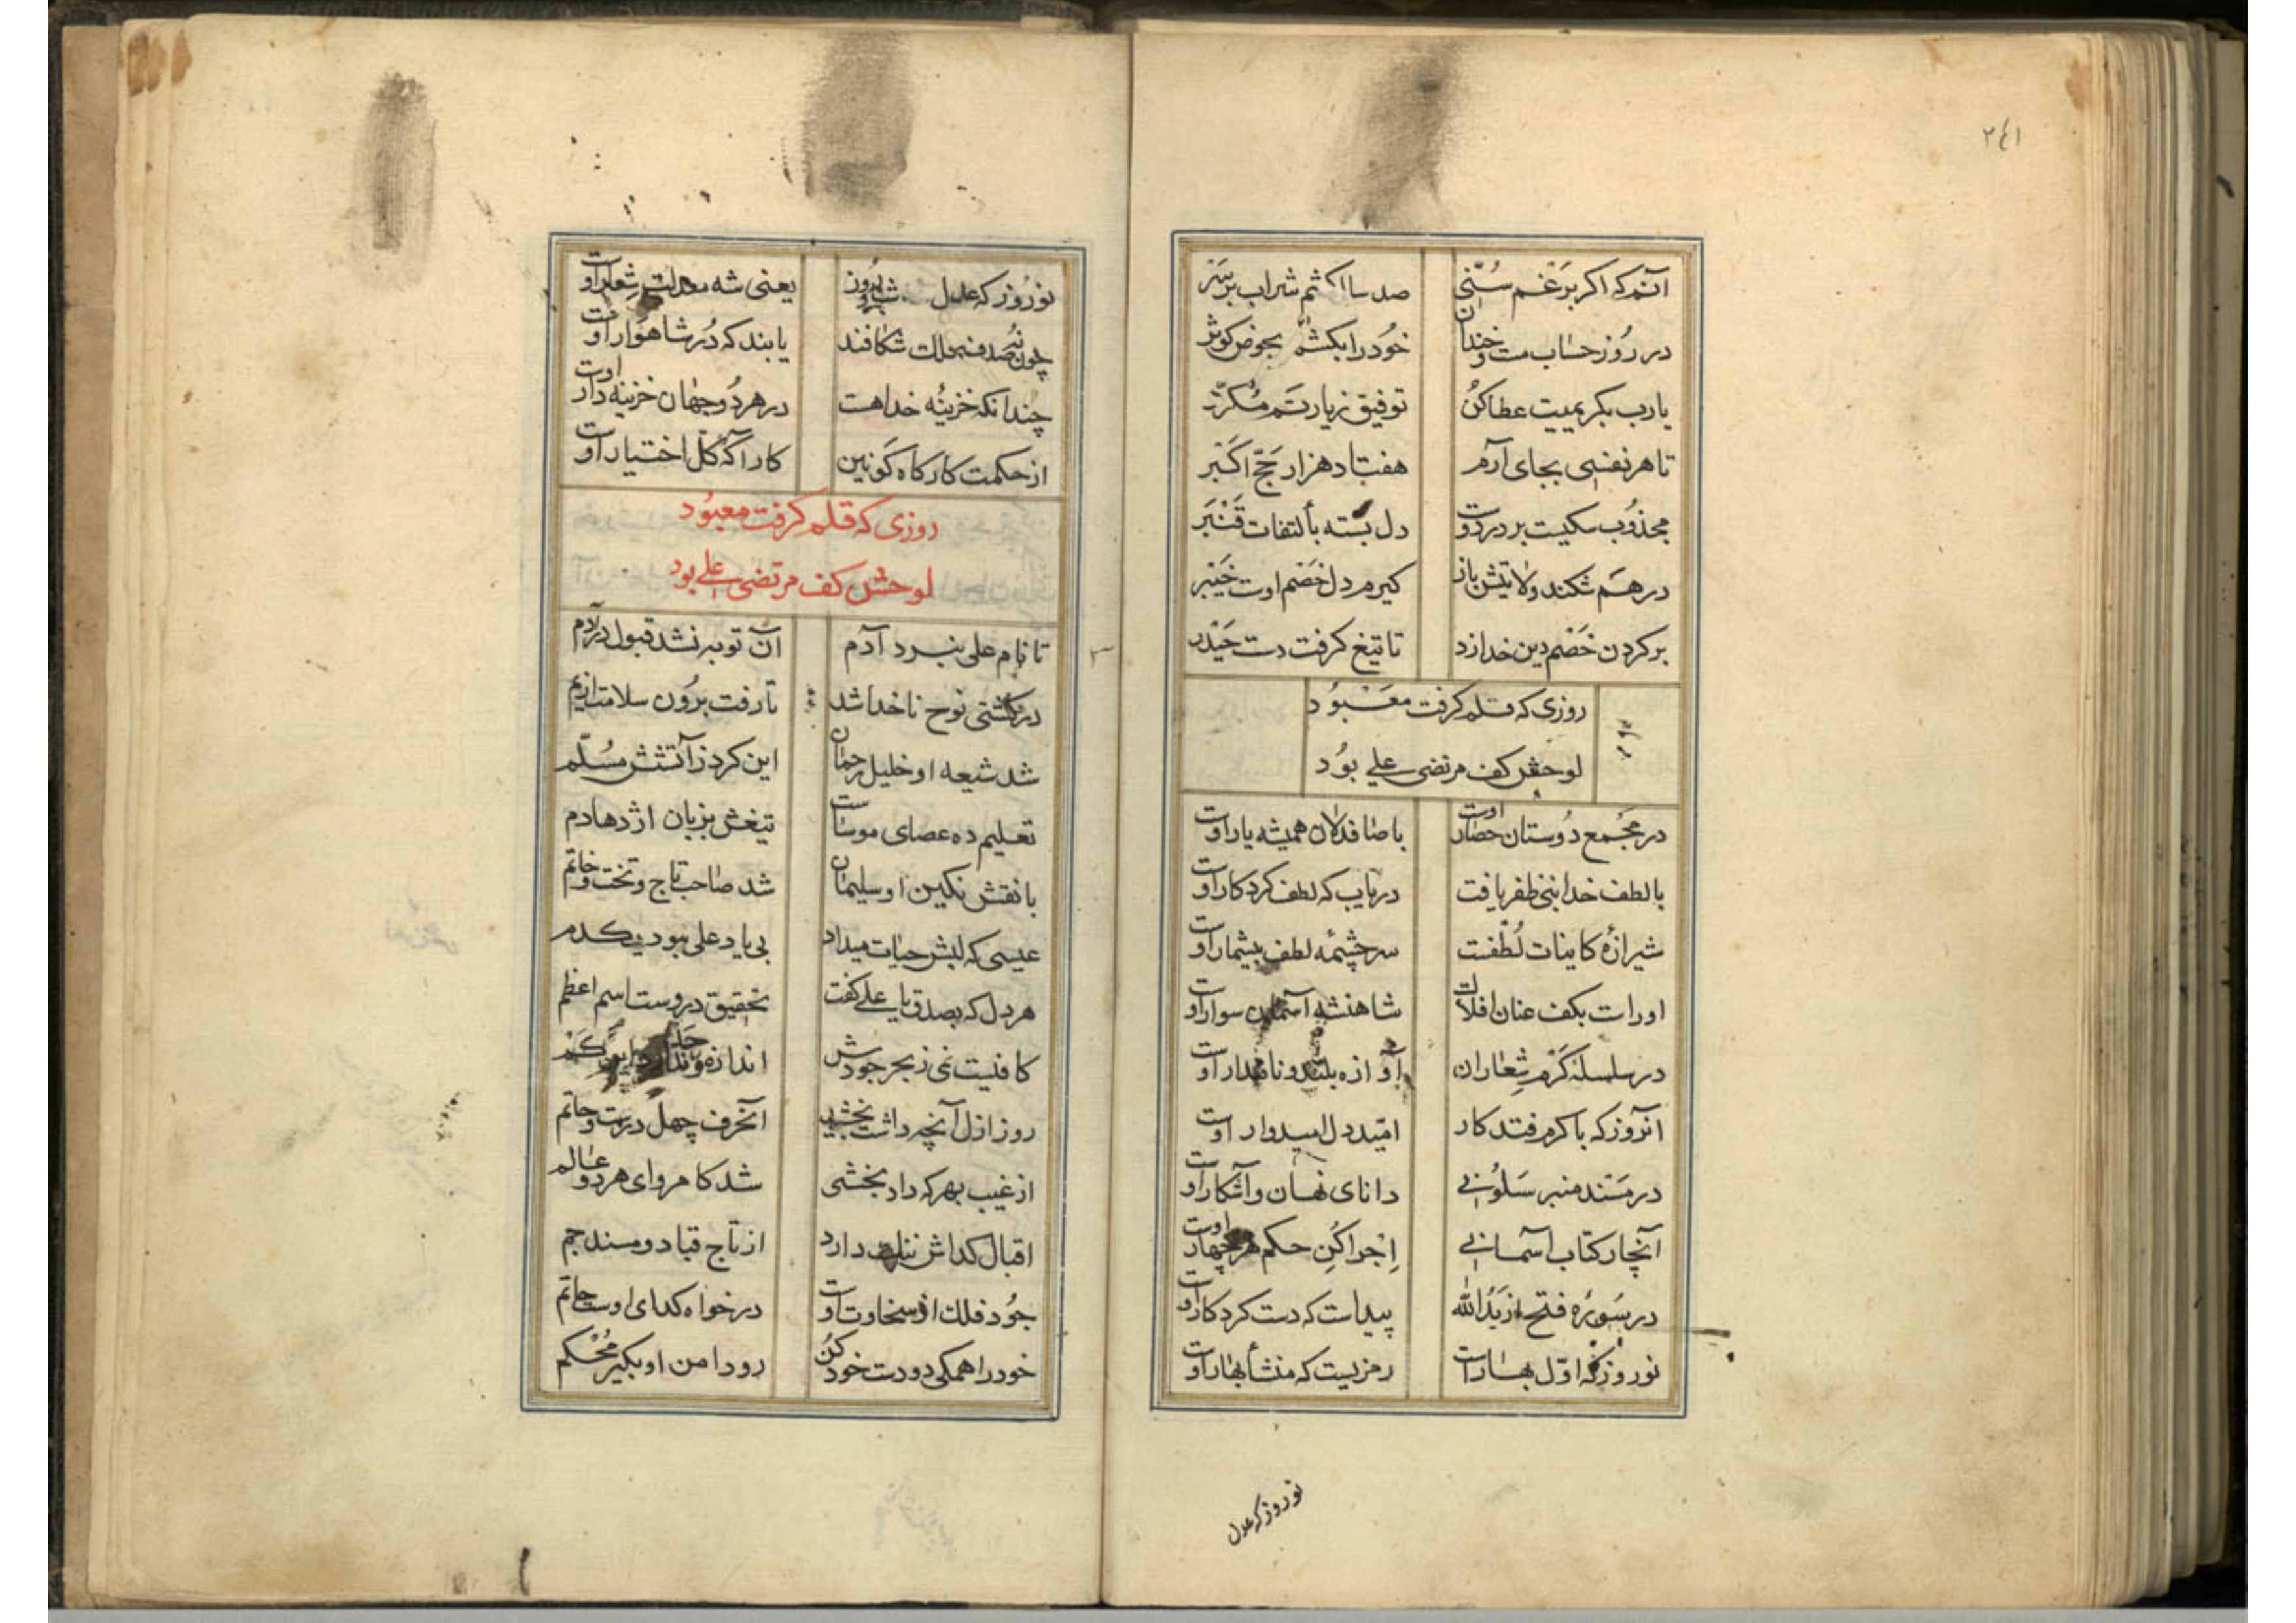 ۲۴۱
آنم که اکر بر غم سُنّی صد ساا کشم شراب بر سر
در روز حساب مست و خندان خود را بکشم بحوض کوثر
یارب بکریمیت عطا کن توفیق زیارتم مکرّر
تا هر نفسی بجای آرم هفتاد هزار حجّ اکبر
مجذوب سکیست بر در دوست دل بسته بألتفات قنبر
در هم شکند ولایتش باز کیرم دل خصم اوست خیبر
بر کردن خصم دین خدا زد تا تیغ کرفت دست حیدر
روزی که قلم کرفت معبود
لوحش کف مرتضی علی بود
در مجمع دوستان حصار اوست با صافدلان همیشه یار اوست
با لطف خدا نبی ظفر یافت دریاب که لطف کردکار اوست
شیرازهٔ کاینات لطفست سرچشمهٔ لطف بیشمار اوست
اوراست بکف عنان افلاک شاهنشه آسمان سوار اوست
در سلسلهٔ کرم شعاران آوازه بلند و نامدار اوست
آنروز که با کرم فتد کار امّید دل امیدوار اوست
در مسند منبر سلونی دانای نهان و آشکار اوست
آنچار کتاب آسمانی اجرا کن حکم هر چهار اوست
در سورهٔ فتح از یدالله پیداست که دست کردکار اوست
نوروز که اوّل بهار است رمزیست که منشأ بهار اوست
نوروز که عدل
نوروز که عدل شب و روز یعنی شه معدلت شعار اوست
چون نه صدف فلک شکافند یابند که درّ شاهوار اوست
چندانکه خزینهٔ خداهست در هر دو جهان خزینه دار اوست
از حکمت کارکاه کونین کارآکه کل اختیار اوست
روزی که قلم کرفت معبود
لوحش کف مرتضی علی بود
تا نام علی نبرد آدم آن توبه نشد قبول در دم
در کشتی نوح ناخدا شد تا رفت برون سلامت از یم
شد شیعه او خلیل رحمان این کرد ز آتشش مسلّم
تعلیم ده عصای موساست تیغش بزبان اژدها دم
با نقش نکین او سلیمان شد صاحب تاج و تخت و خاتم
عیسی که لبش حیات میداد بی یاد علی نبود یکدم
هر دل که بصدق یا علی کفت تحقیق در وست اسم اعظم
کافیست نمی ز بحر جودش اندازه
روز ازل آنچه داشت بخشید آنحرف چهل درست و حاتم
از غیب بهر که داد بخشی شد کامروای هر دو عالم
اقبال کداش ننک دارد از تاج قباد و مسند جم
جود فلک از سخاوت اوست در خواه کدای اوست حاتم
خود را همکی دو دست خود کن رو دامن او بکیر محکم